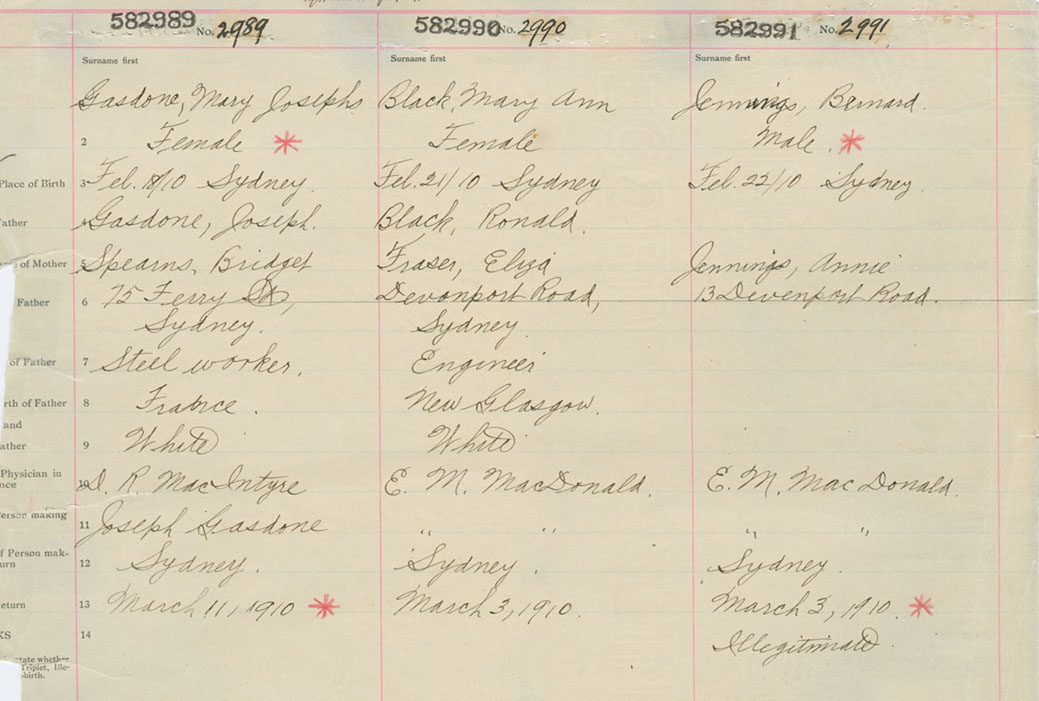 582989 No. 2989 582990 No. 2990 582991 No. 2991
Surname first Surname first Surname first
Gasdone, Mary Josephs Black, Mary Ann Jennings, Bernard.
2 Female * Female Male. *
Place of Birth 3 Feb. 18/10 Sydney. Feb. 21/10 Sydney Feb. 22/10 Sydney
ather 4 Gasdone, Joseph. Black, Ronald.
me of Mother 5 Spearns, Bridget Fraser, Eliza Jennings, Annie
Father 6 75 Ferry St, Devonport Road, 13 Devenport Road.
Sydney. Sydney.
of Father 7 Steel worker, Engineer
rth of Father 8 New Glasgow.
and
ather 9 White White
Physician in 10 D. R. MacIntyre E. M. MacDonald. E. M. MacDonald.
nce
erson making 11 Joseph Gasdone " " " "
f Person mak- 12 Sydney. Sydney. Sydney.
urn
eturn 13 March 11, 1910 * March 3, 1910. March 3, 1910 *
KS 14 Illegitimate
state whether
Triplet, Ille-
-birth.